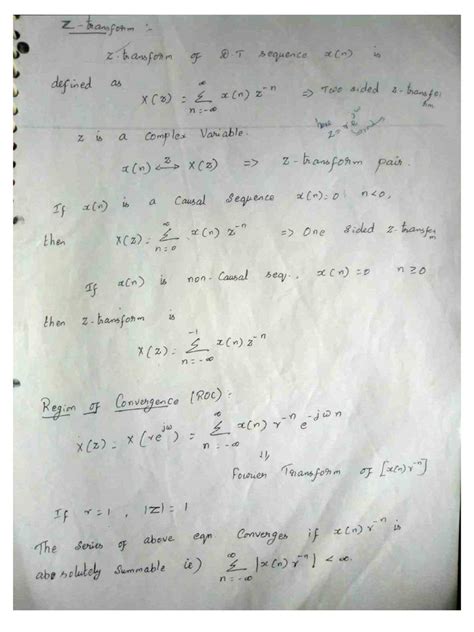 Z-transform :-
Z-transform of D.T sequence x(n) is
defined as
X(z) = ∞ Σ n=-∞ x(n) z^-n ⇒ Two sided z-transform
z is a complex variable.
x(n) ←z→ X(z) ⇒ z-transform pair.
If x(n) is a Causal Sequence x(n)=0 n<0,
then X(z) = ∞ Σ n=0 x(n) z^-n ⇒ One sided z-transfm
If x(n) is non-Causal seq., x(n)=0 n≥0
then z-transform is
X(z) = -1 Σ n=-∞ x(n) z^-n
Region of Convergence (ROC):-
X(z) = X(re^jω) = ∞ Σ n=-∞ x(n) r^-n e^-jωn
⇓
Fourier Transform of [x(n) r^-n]
If r=1, |z|=1
The Series of above eqn Converges if x(n) r^-n is
absolutely Summable ie) ∞ Σ n=-∞ |x(n) r^-n| < ∞.